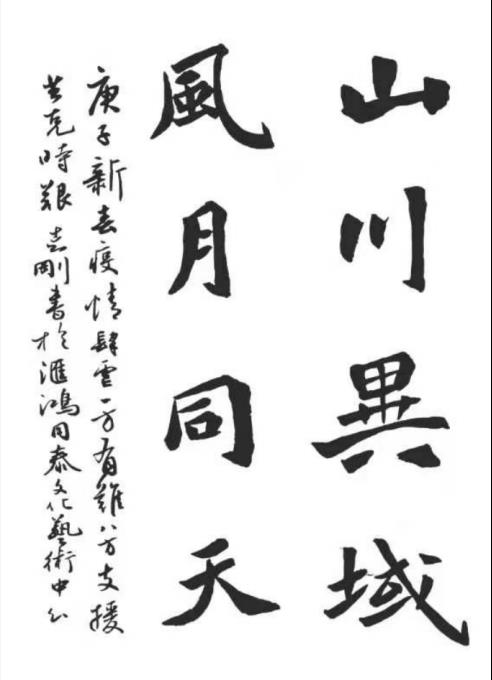 山川異域
風月同天
庚子新春疫情肆虐一方有難八方支援
共克時艱 志剛書於滙鴻同泰文化藝術中心